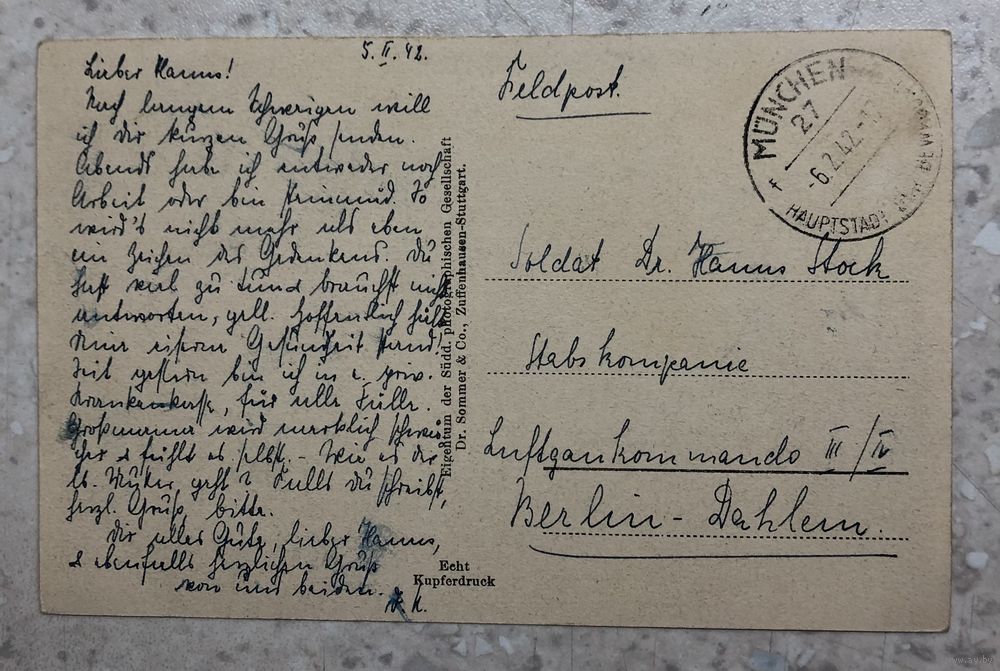 5. II. 42.
Lieber Hanns!
Nach langem Schweigen will
ich dir kurzen Gruß senden.
Abends habe ich entweder noch
Arbeit oder bin hundmüd. So
wird's nicht mehr als eben
ein Zeichen des Gedenkens. Du
hast viel zu tun & brauchst nicht
antworten, gell. Hoffentlich hält
deine eiserne Gesundheit stand!
Seit gestern bin ich in e. priv.
Krankenkasse, für alle Fälle.
Großmama wird merklich schwä
cher & fühlt es selbst. - Wie es der
lb. Mutter geht? Falls du schreibst,
herzl. Gruß, bitte.
Dir alles Gute, lieber Hanns,
& ebenfalls herzlichen Gruß
von uns beiden.
K.
Eigentum der Südd. photographischen Gesellschaft
Dr. Sommer & Co., Zuffenhausen-Stuttgart.
Echt
Kupferdruck
Feldpost.
MÜNCHEN
27
-6.2.42.-17
f
HAUPTSTADT DER BEWEGUNG
Soldat Dr. Hanns Stock
Stabskompanie
Luftgaukommando III/IV
Berlin-Dahlem.